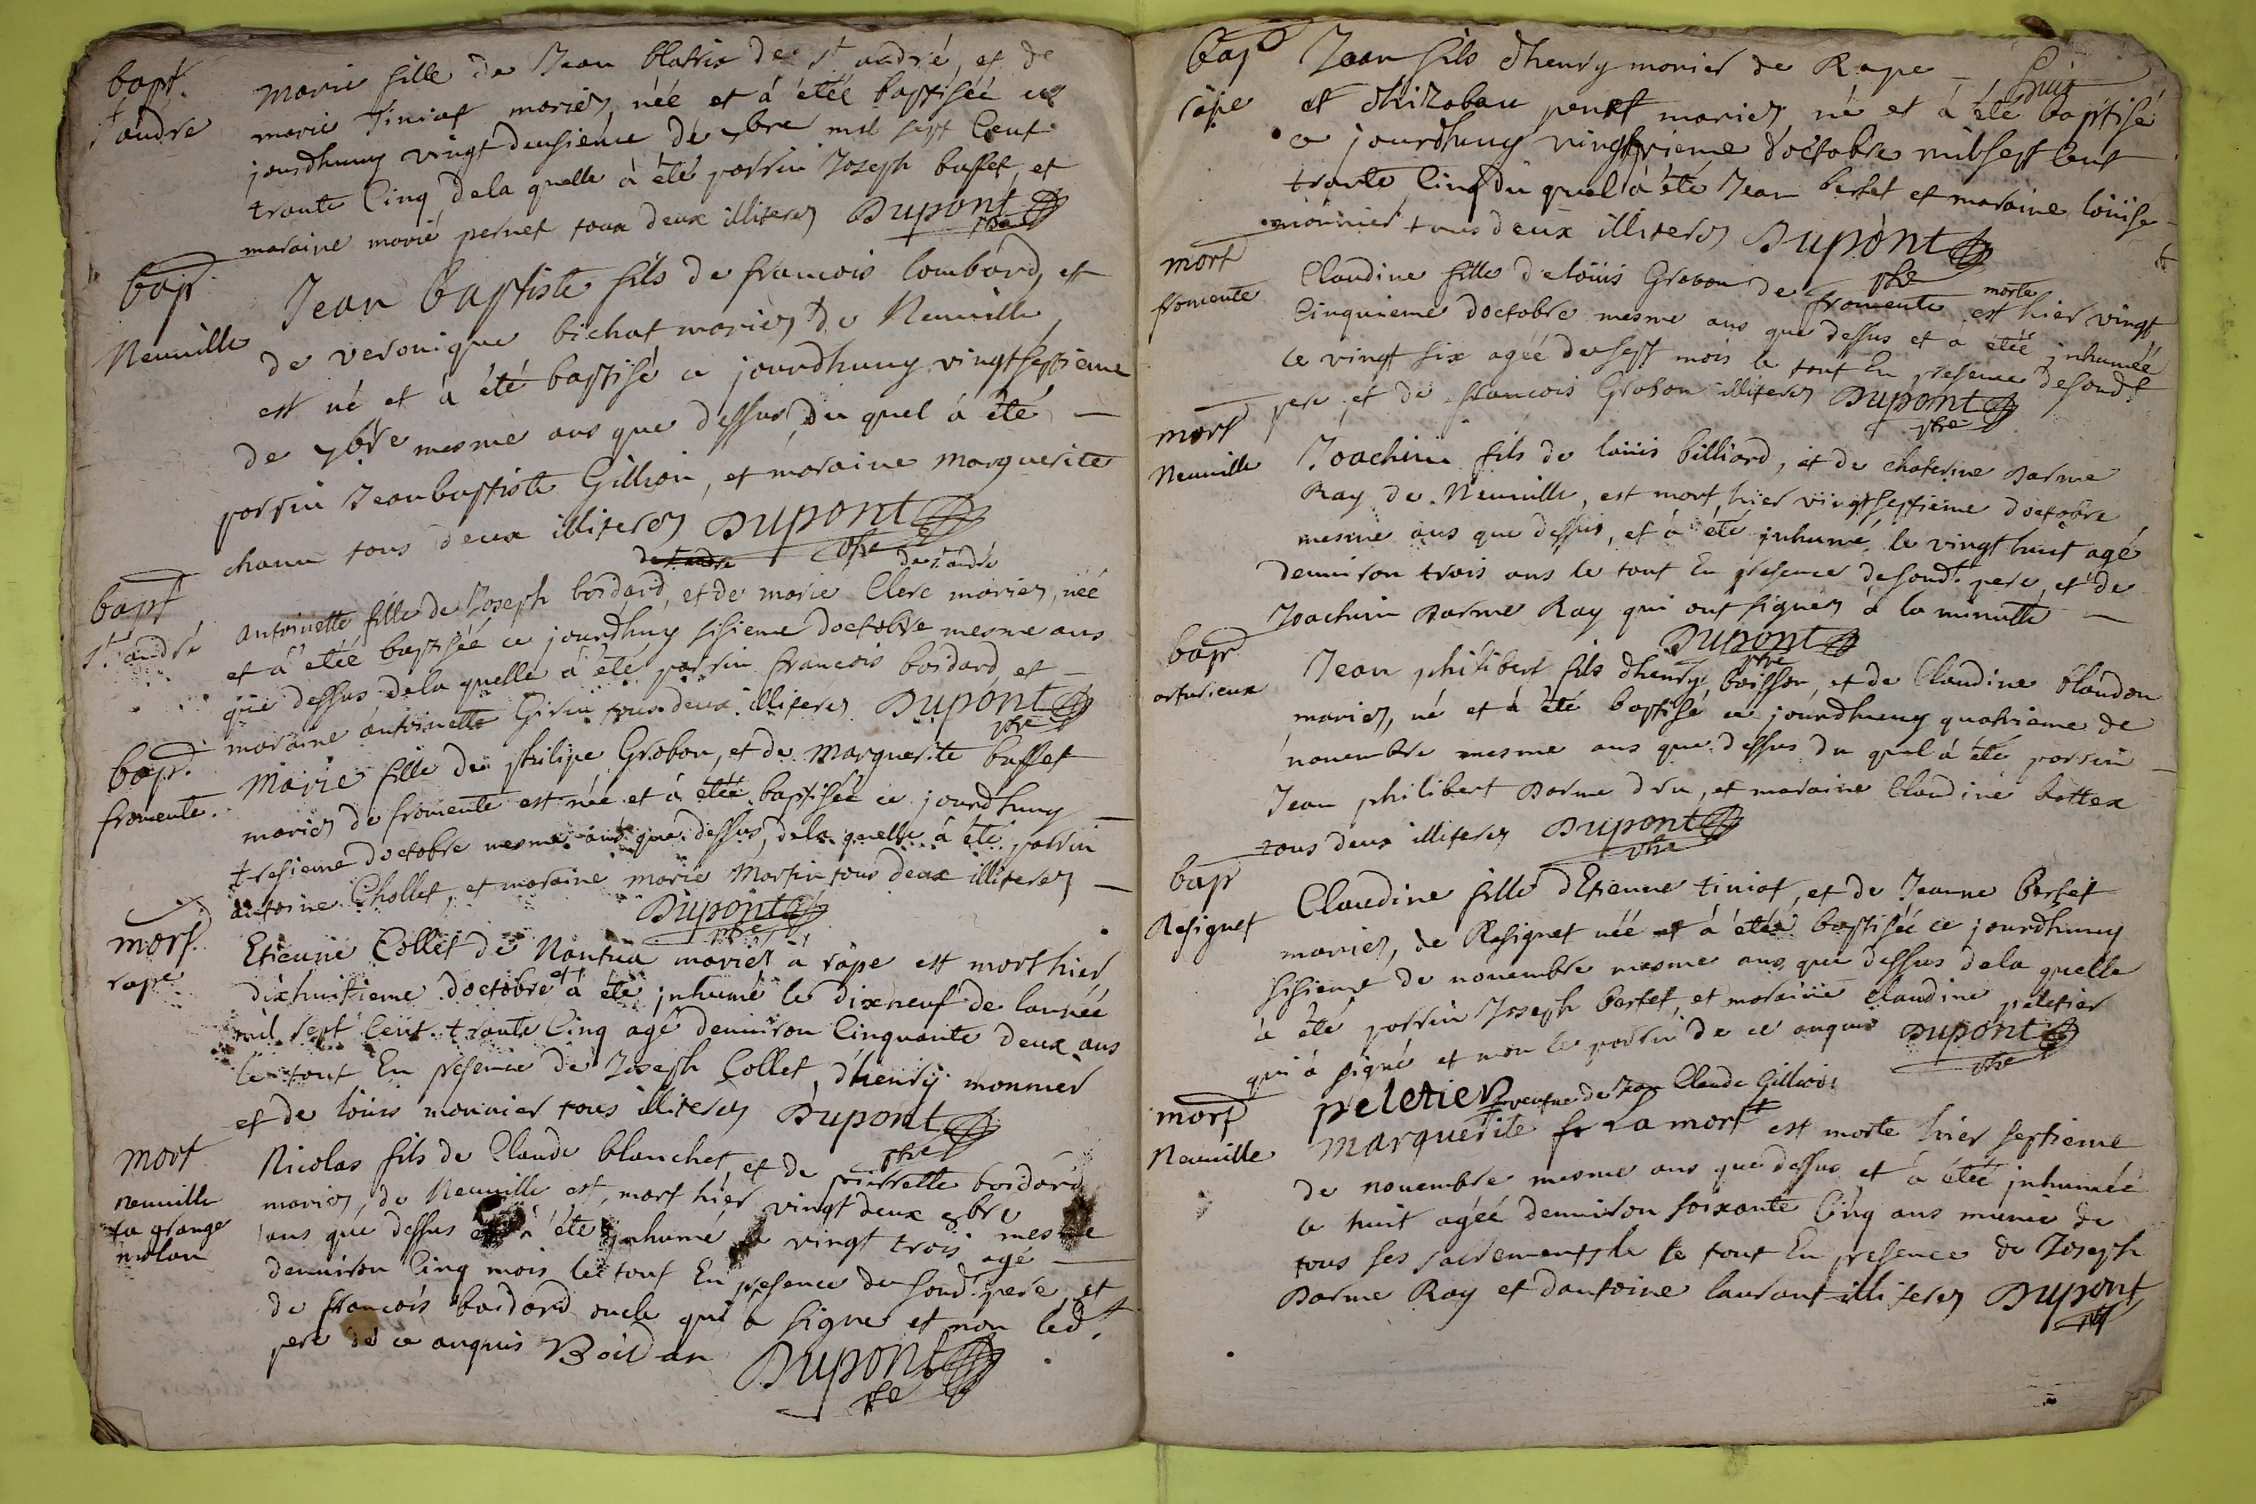 bapt. Marie fille de Jean blatrix de st andré, et de
st andré marie Tiniot mariez, née et á étéé baptiséé ce
jourdhuuy vingt deusieme de 7bre mil sept Cent
trante Cinq dela quelle à été parrin Joseph buffet, et
maraine marié pernet tous deux illiterez Dupont
ptre
bap Jean baptiste fils de francois lombard, et
Neuuille de veronique bichat mariez de Neuuille
est né et á été baptisé ce jourdhuuy vingtseptieme
de 7bre mesme ans que dessus, du quel á été
parrin Jeanbaptiste Gillion, et maraine marguerite
chanu tous deux illiterez Dupont
ptre
de st andré
bapt antoinette fille de Joseph bordard, et de marie Clerc mariez, néé
st andré et á étéé baptiséé ce jourdhuy sisieme doctobre mesme ans
que dessus dela quelle á été parrin francois bordard et
maraine antoinette Girin tous deux illiterez Dupont
ptre
bapt. Marie fille de philipe Grobon, et de Marguerite buffet
fromente. mariez de fromente est née et á étéé baptiséé ce jourdhuuy
tresieme doctobre mesme ans que dessus, dela quelle á été parrin
antoine Chollet, et maraine marie Martin tous deux illiterez
Dupont
ptre
mort Etienne Collet de Nantua mariez a rape est mort hier
rape dixhuitieme doctobre et á été jnhumé le dixneuf de lannéé
mil sept Cent trante Cinq agé deuuiron Cinquante deux ans
le tout En presence de Joseph Collet, d'henry monnier
et de loüis monnier tous illiterez Dupont
ptre
mort Nicolas fils de Claude blanchet, et de pierrette bordard
neuuille mariez, de Neuuille est, mort hier vingt deux 8bre mesme
la grange ans que dessus et á été jnhumé le vingt trois agé
molan deuuiron Cinq mois le tout En presence du soud. pere, et
de francois bordard oncle qui a signé et non led.t
pere de ce anquis Boirdar Dupont
ptre
bap Jean fils dhenry monier de Rape
rape et Elizabau penet mariez né et á été baptisé
ce jourdhuuy vingtsrieme d'octobre mil sept Cent
trante Cinq du quel á été Jean bertet et maraine loüise
monnier tous deux illiterez Dupont
ptre
mort Claudine fille de loüis Grobon de fromente est morte hier vingt
fromente Cinquieme doctobre mesme ans que dessus et a étéé jnhuméé
le vingt six agéé de sept mois le tout En presence de soud.t
pere, et de francois Grobon illiterez Dupont
ptre
mort Joachim fils de loüis billiard, et de chaterine Darme
Neuuille Ray de Neuuille, est mort hier vingtseptieme doctobre
mesme ans que dessus, et á été jnhumé, le vingthuit agé
deuuiron trois ans le tout En presence de soud.t pere, et de
Joachim Darme Ray qui ont signéz á la minutte
Dupont
ptre
bap Jean philibert fils dhenry boisson, et de Claudine blandon
arturieux mariez, né et á été baptisé ce jourdhuuy quatrieme de
nouembre mesme ans que dessus du quel á été parrin
Jean philibert Darme dru, et maraine Claudine bottex
tous deux illiterez Dupont
ptre
bap Claudine fille dEtienne tiniot, et de Jeanne bertet
Resignet mariez, de Resignet néé et á étéé baptiséé ce jourdhuuy
sisieme de nouembre mesme ans que dessus dela quelle
á été parrin Joseph bertet, et maraine Claudine peletier
qui á signé et non le parrin de ce anquis Dupont
ptre
peletier
veufue de Jean Claude Gillion
mort Marguerite La mort est morte hier septieme
Neuuille de nouembre mesme ans que dessus et á étéé jnhuméé
ce huit agéé deuuiron soixante Cinq ans munie de
tous ses sacrements le tout En presence de Joseph
Darme Ray et dantoine laurant illiterez Dupont
ptre